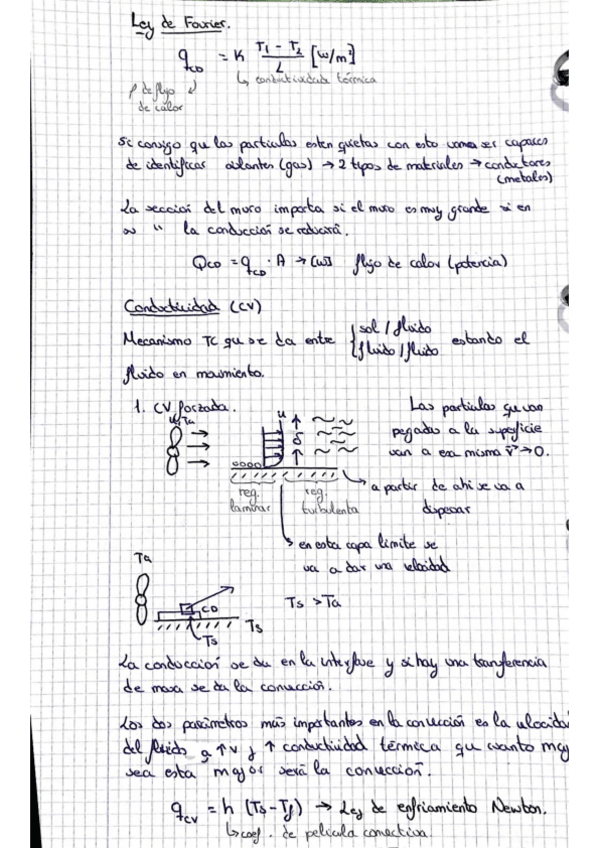 Ley de Fourier.
q_CD = K (T1 - T2)/L [w/m²]
↳ conductividad térmica
de flujo
de calor
Si consigo que las particulas esten quietas con esto vamos ser capaces
de identificar aislantes (gas) → 2 tipos de materiales → conductores
(metales)
La seccion del muro importa si el muro es muy grande si en
∞ " la conducción se reducirá.
Q_CD = q_CD · A → [W] flujo de calor (potencia)
Conductividad (CV)
Mecanismo TC que se da entre { sol / fluido
{ fluido / fluido estando el
fluido en movimiento.
1. CV forzada.
u, Ta
u
δ
Las particulas que van
pegadas a la superficie
van a esa misma v → 0.
reg.
laminar
reg.
turbulenta
a partir de ahi se va a
dispersar
en esta capa límite se
va a dar una velocidad
Ta
CD
Ts
Ts
Ts > Ta
La conduccion se da en la interfase y si hay una transferencia
de masa se da la convección.
Los dos parámetros más importantes en la convección es la velocidad
del fluido a ↑v y ↑ conductividad térmica que cuanto may
sea esta mayor será la convección.
q_CV = h (Ts - Tf) → Ley de enfriamiento Newton.
↳ coef. de película convectiva.